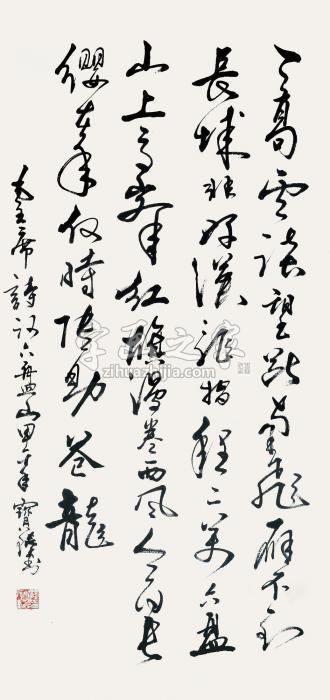 天高雲淡望斷南飛雁不到
長城非好漢屈指程二萬六盤
山上高峯紅旗漫卷西風今日長
纓在手何時縛住蒼龍
毛主席詩詞六盤山
字画之家
zihuazhijia.com